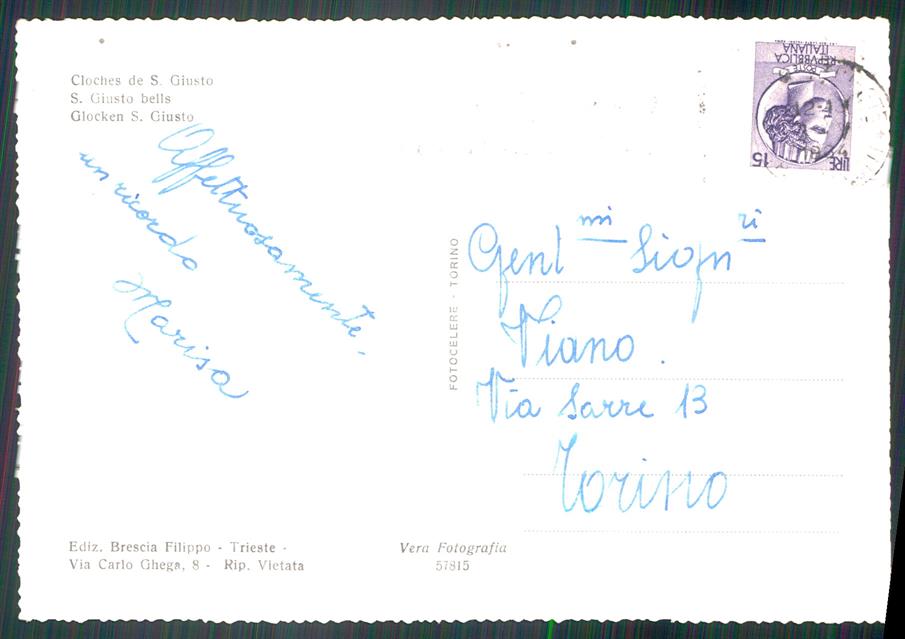 Cloches de S. Giusto
S. Giusto bells
Glocken S. Giusto
Affettuosamente.
un ricordo
Marisa
POSTE
REPVBBLICA
ITALIANA
LIRE 15
Gent mi Sign ri
Viano.
Via Sarre 13
Torino
FOTOCELERE - TORINO
Ediz. Brescia Filippo - Trieste -
Via Carlo Ghega, 8 - Rip. Vietata
Vera Fotografia
57815